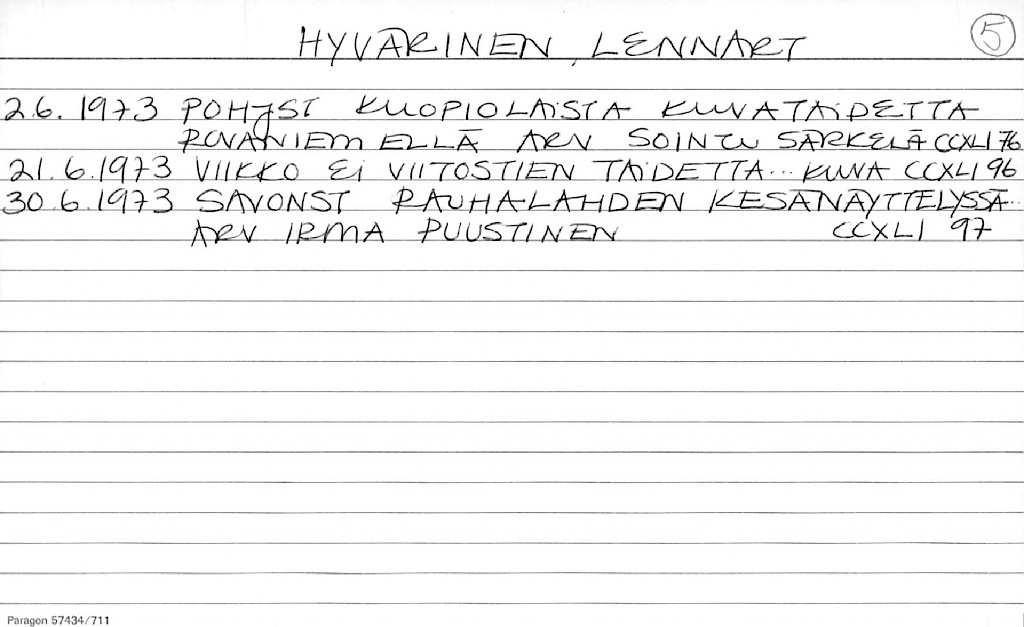 HYVÄRINEN, LENNART 5
2.6. 1973 POHJST KUOPIOLAISTA KUVATAIDETTA
ROVANIEMELLÄ ARV SOINTU SÄRKELÄ CCXLI 76
21.6.1973 VIIKKO EI VIITOSTIEN TAIDETTA... KUVA CCXLI 96
30.6.1973 SAVONST RAUHALAHDEN KESÄNÄYTTELYSSÄ...
ARV IRMA PUUSTINEN CCXLI 97
Paragon 57434/711